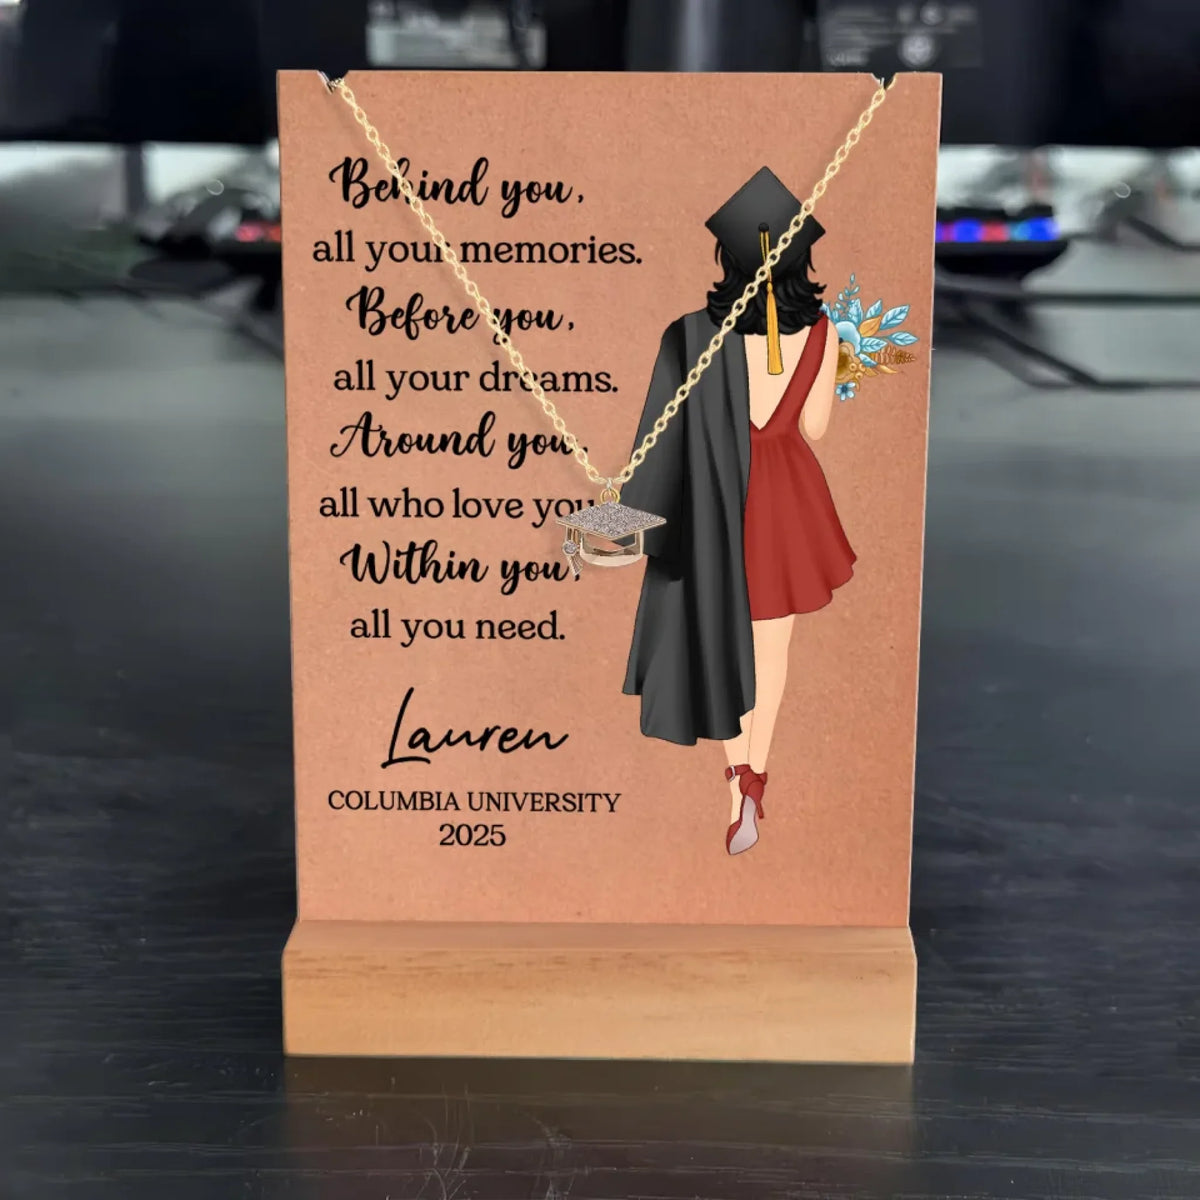 Behind you,
all your memories.
Before you,
all your dreams.
Around you,
all who love you
Within you,
all you need.
Lauren
COLUMBIA UNIVERSITY
2025